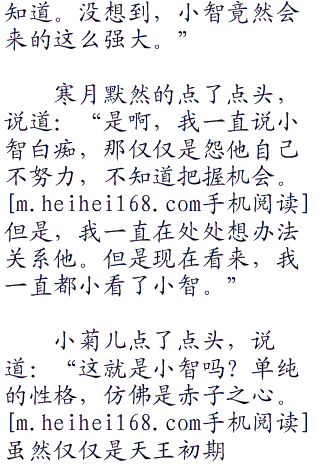 知道。没想到，小智竟然会
来的这么强大。”
寒月默然的点了点头，
说道：“是啊，我一直说小
智白痴，那仅仅是怨他自己
不努力，不知道把握机会。
[m.heihei168.com手机阅读]
但是，我一直在处处想办法
关系他。但是现在看来，我
一直都小看了小智。”
小菊儿点了点头，说
道：“这就是小智吗？单纯
的性格，仿佛是赤子之心。
[m.heihei168.com手机阅读]
虽然仅仅是天王初期